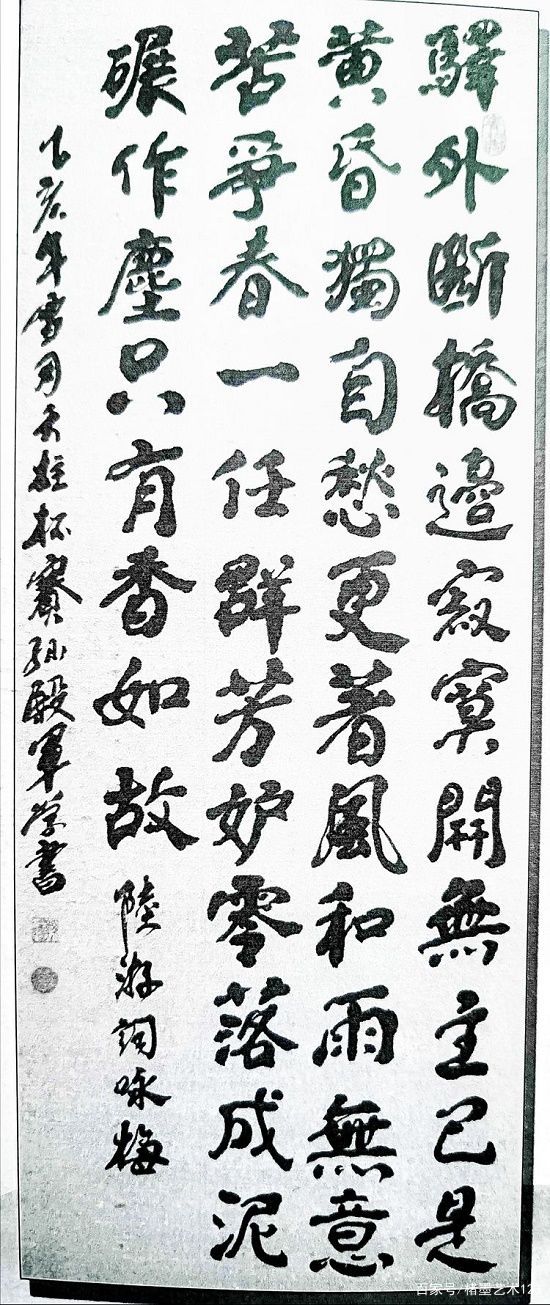 驛外斷橋邊寂寞開無主已是
黄昏獨自愁更著風和雨無意
苦爭春一任群芳妒零落成泥
碾作塵只有香如故 陸游詞咏梅
乙亥年雪月天柱杯賽孙殿軍学書
百家号/楮墨艺术12